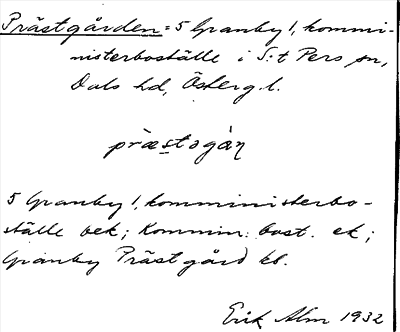 Prästgården = 5 Granby 1, kommi-
nisterboställe i S:t Pers sn,
Dals hd, Östergl.
præstogàṇ
5 Granby 1, komministerbo-
ställe oek; Kommin. bost. ek;
Granby Prästgård kb.
Erik Alm 1932